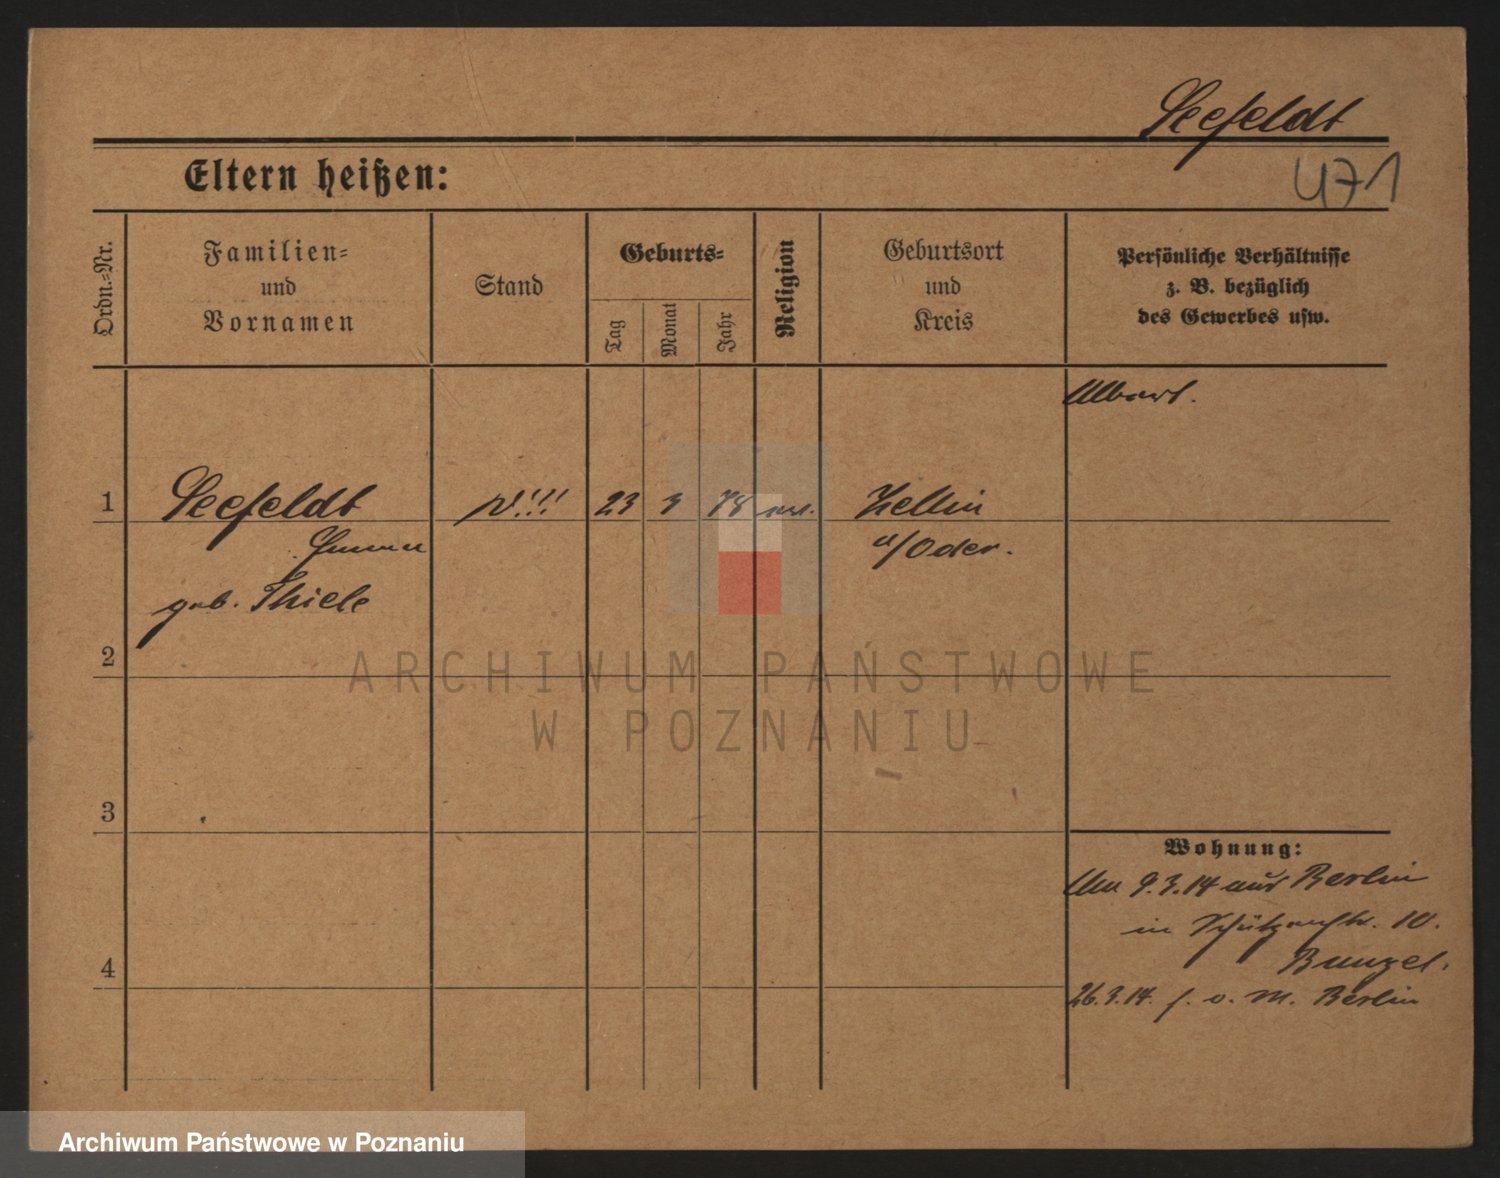 Seefeldt
471
Eltern heißen:
Ordn.-Nr.
Familien-
und
Vornamen
Stand
Geburts-
Tag
Monat
Jahr
Religion
Geburtsort
und
Kreis
Persönliche Verhältnisse
z. B. bezüglich
des Gewerbes usw.
1 Seefeldt 23 3 78 ev. Zellin
Emma a/Oder.
geb. Thiele
2
3
4
Wohnung:
Am 9.3.14 aus Berlin
in Schützenstr. 10.
Bunzel.
26.3.14. f. v. M. Berlin
ARCHIWUM PAŃSTWOWE
W POZNANIU
Archiwum Państwowe w Poznaniu